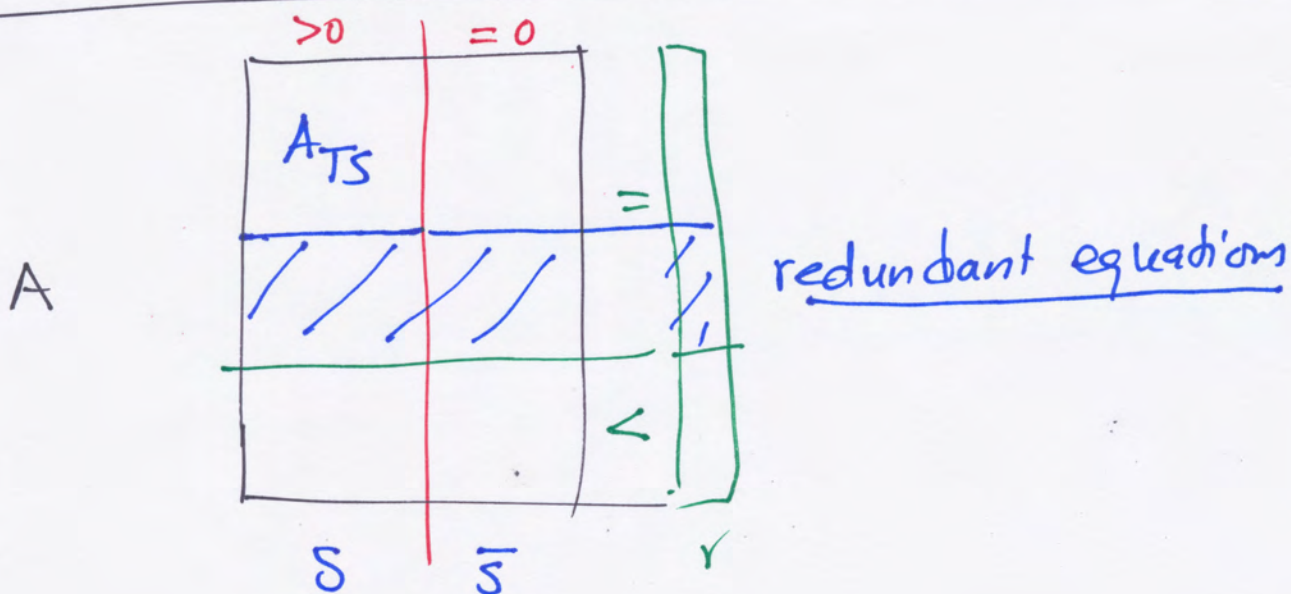 >0 = 0
A_TS
=
redundant equations
A
<
S S̅ r